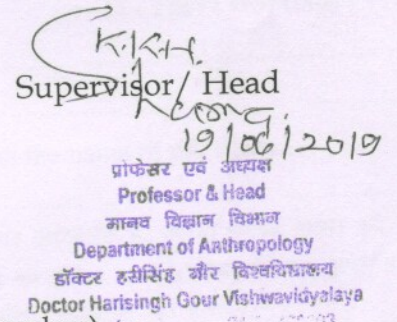 K.K.H.
Supervisor/ Head
19/06/2019
प्रोफेसर एवं अध्यक्ष
Professor & Head
मानव विज्ञान विभाग
Department of Anthropology
डॉक्टर हरीसिंह गौर विश्वविद्यालय
Doctor Harisingh Gour Vishwavidyalaya